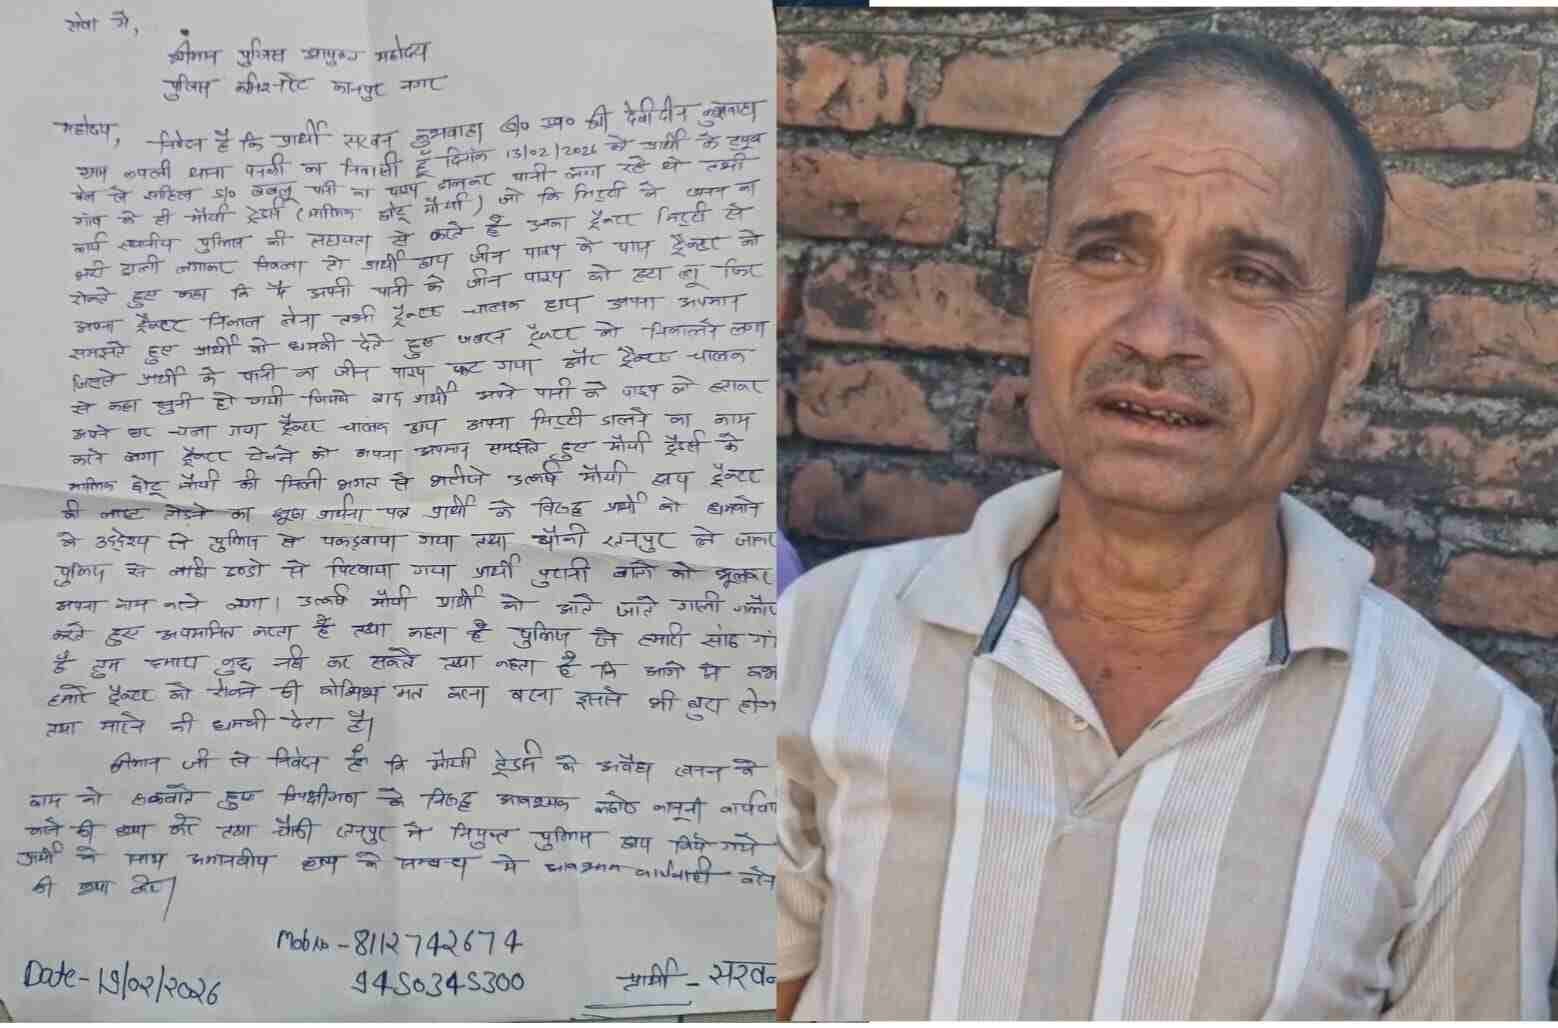 सेवा में,
श्रीमान पुलिस आयुक्त महोदय
पुलिस कमिश्नरेट कानपुर नगर
महोदय,
निवेदन है कि प्रार्थी सरवन कुशवाहा S/o स्व० श्री देवीदीन कुशवाहा
ग्राम थाना पनकी का निवासी हूँ दिनांक 13/02/2026 को प्रार्थी के ट्यूब
वेल से साहिल S/o बबलू पानी का पाइप डालकर पानी लगा रहे थे तभी
गांव के ही मौर्या ट्रेडर्स (मालिक छोटू मौर्या) जो कि मिट्टी के खनन का
कार्य स्थानीय पुलिस की सहायता से करते है उनका ट्रैक्टर मिट्टी से
भरी ट्राली लगाकर निकला तो प्रार्थी द्वारा जीन पाइप के पास ट्रैक्टर को
रोकते हुए कहा कि मै अपनी पानी के जीन पाइप को हटा लू फिर
अपना ट्रैक्टर निकाल लेना तभी ट्रैक्टर चालक द्वारा अपना अपमान
समझते हुए प्रार्थी को धमकी देते हुए जबरन ट्रैक्टर को निकालने लगा
जिससे प्रार्थी के पानी का जीन पाइप फट गया और ट्रैक्टर चालक
से कहा सुनी हो गयी जिसके बाद प्रार्थी अपने पानी के पाइप को हटाकर
अपने घर चला गया ट्रैक्टर चालक द्वारा अपना मिट्टी डालने का काम
करने लगा ट्रैक्टर रोकने को अपना अपमान समझते हुए मौर्या ट्रेडर्स के
मालिक छोटू मौर्या की मिली भगत से भतीजे उत्कर्ष मौर्या द्वारा ट्रैक्टर
की लाइट तोड़ने का झूठा प्रार्थना पत्र प्रार्थी के विरुद्ध प्रार्थी को धमकाने
के उद्देश्य से पुलिस से पकड़वाया गया तथा चौकी रतनपुर ले जाकर
पुलिस से लाठी डण्डो से पिटवाया गया प्रार्थी पुरानी बातों को भूलकर
अपना काम करने लगा। उत्कर्ष मौर्या प्रार्थी को आते जाते गाली गलौज
करते हुए अपमानित करता है तथा कहता है पुलिस से हमारी सांठ गां
है तुम हमारा कुछ नही कर सकते तथा कहता है कि आगे से कभ
हमारे ट्रैक्टर को रोकने की कोशिश मत करना वरना इससे भी बुरा होग
तथा मारने की धमकी देता है।
श्रीमान जी से निवेदन है कि मौर्या ट्रेडर्स के अवैध खनन के
काम को रुकवाते हुए विपक्षीगण के विरुद्ध आवश्यक कठोर कानूनी कार्यवा
करने की कृपा करें तथा चौकी रतनपुर में नियुक्त पुलिस द्वारा किये गये
प्रार्थी के साथ अमानवीय कृत्य के सम्बन्ध मे आवश्यक कार्यवाही करने
की कृपा करें।
Mob No - 8112742674
9450345300
Date - 19/02/2026
प्रार्थी - सरवन